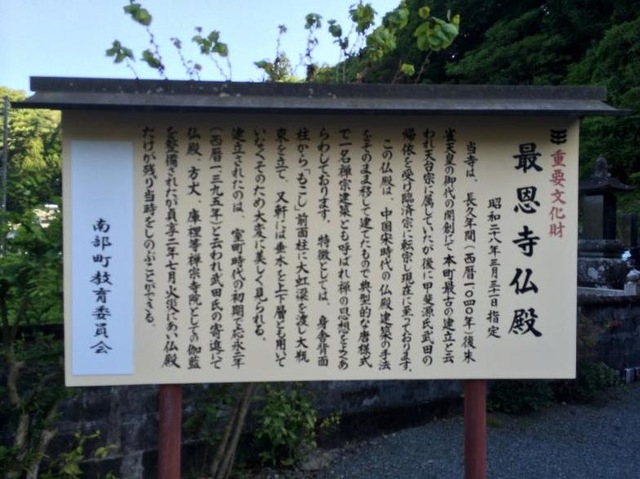 重要文化財
最恩寺仏殿
昭和二八年三月三十一日指定
当寺は、長久年間(西暦一〇四〇年)後朱
雀天皇の御代の開創にて本町最古の建立と云
われ天台宗に属していたが後に甲斐源氏武田の
帰依を受け臨済宗に転宗し現在に至っております。
この仏殿は、中国宋時代の仏殿建築の手法
をそのまま移して建てたもので典型的な唐様式
で一名禅宗建築とも呼ばれ禅の思想をよくあ
らわしております。特徴としては、身舎背面
柱から「もこし」前面柱に大虹梁を渡し大瓶
束を立て、又軒には垂木を上下層とも用いて
いなくそのため大変に美しく見られる。
建立されたのは、室町時代の初期で応永二年
(西暦一三九五年)と云われ武田氏の寄進にて
仏殿、方丈、庫裡等禅宗寺院としての伽藍
を整備されたが貞享二年七月火災にあい仏殿
だけが残り当時をしのぶことができる。
南部町教育委員会